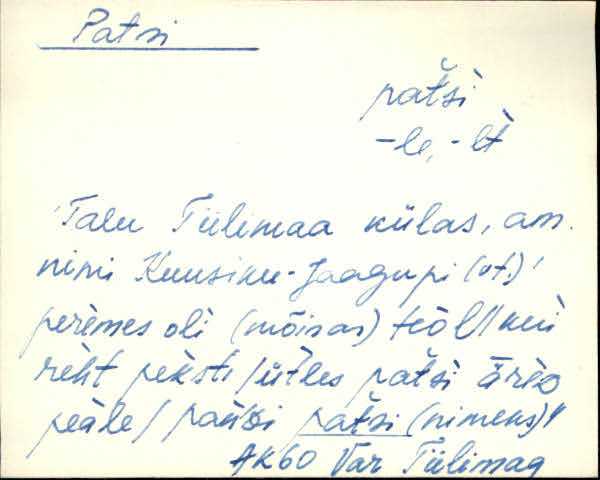 Patsi
pat̆si̬
-le, -lt
'Talu Tiilimaa külas, am.
nimi Kuusiku-Jaagupi (vt.)'
perèmes oli (mõisas) teòl / kui
rèht pèksti / ütles patši ärìä
peäle / pañti patši (nimeks)"
AK60 Var Tiilimaa